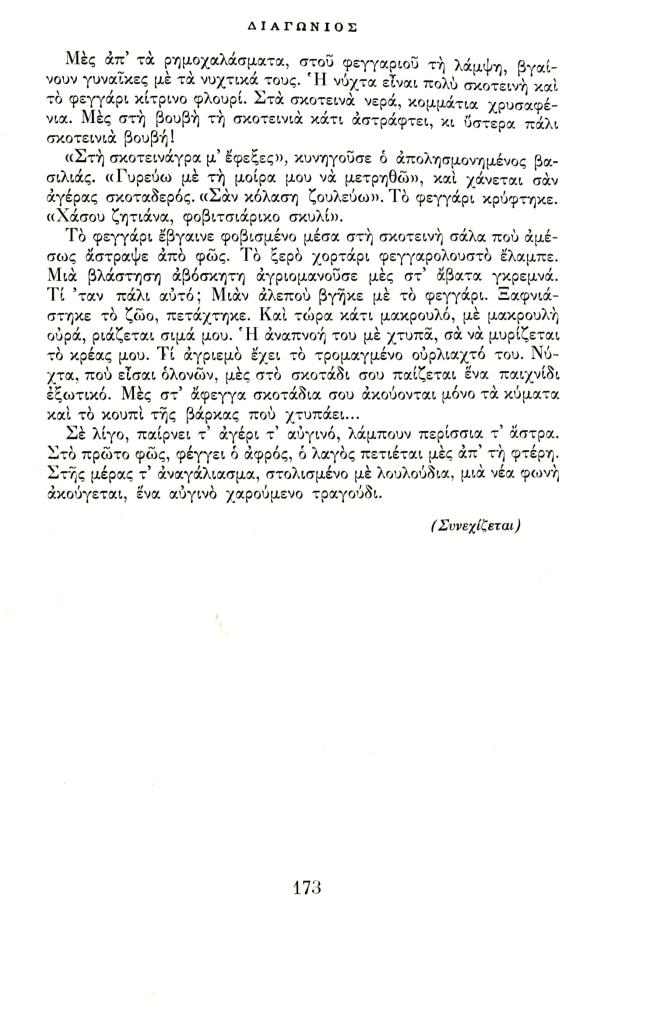 ΔΙΑΓΩΝΙΟΣ
Μὲς ἀπ' τὰ ρημοχαλάσματα, στοῦ φεγγαριοῦ τὴ λάμψη, βγαί-
νουν γυναῖκες μὲ τὰ νυχτικά τους. Ἡ νύχτα εἶναι πολὺ σκοτεινὴ καὶ
τὸ φεγγάρι κίτρινο φλουρί. Στὰ σκοτεινὰ νερά, κομμάτια χρυσαφέ-
νια. Μὲς στὴ βουβὴ τὴ σκοτεινιὰ κάτι ἀστράφτει, κι ὕστερα πάλι
σκοτεινιὰ βουβή!
«Στὴ σκοτεινάγρα μ' ἔφεξες», κυνηγοῦσε ὁ ἀπολησμονημένος βα-
σιλιάς. «Γυρεύω μὲ τὴ μοίρα μου νὰ μετρηθῶ», καὶ χάνεται σὰν
ἀγέρας σκοταδερός. «Σὰν κόλαση ζουλεύω». Τὸ φεγγάρι κρύφτηκε.
«Χάσου ζητιάνα, φοβιτσιάρικο σκυλί».
Τὸ φεγγάρι ἔβγαινε φοβισμένο μέσα στὴ σκοτεινὴ σάλα ποὺ ἀμέ-
σως ἄστραψε ἀπὸ φῶς. Τὸ ξερὸ χορτάρι φεγγαρολουστὸ ἔλαμπε.
Μιὰ βλάστηση ἀβόσκητη ἀγριομανοῦσε μὲς στ' ἄβατα γκρεμνά.
Τί 'ταν πάλι αὐτό; Μιὰν ἀλεποὺ βγῆκε μὲ τὸ φεγγάρι. Ξαφνιά-
στηκε τὸ ζῶο, πετάχτηκε. Καὶ τώρα κάτι μακρουλό, μὲ μακρουλὴ
οὐρά, ριάζεται σιμά μου. Ἡ ἀναπνοή του μὲ χτυπᾶ, σὰ νὰ μυρίζεται
τὸ κρέας μου. Τί ἀγριεμὸ ἔχει τὸ τρομαγμένο οὐρλιαχτό του. Νύ-
χτα, ποὺ εἶσαι ὁλονῶν, μὲς στὸ σκοτάδι σου παίζεται ἕνα παιχνίδι
ἐξωτικό. Μὲς στ' ἄφεγγα σκοτάδια σου ἀκούονται μόνο τὰ κύματα
καὶ τὸ κουπὶ τῆς βάρκας ποὺ χτυπάει...
Σὲ λίγο, παίρνει τ' ἀγέρι τ' αὐγινό, λάμπουν περίσσια τ' ἄστρα.
Στὸ πρῶτο φῶς, φέγγει ὁ ἀφρός, ὁ λαγὸς πετιέται μὲς ἀπ' τὴ φτέρη.
Στῆς μέρας τ' ἀναγάλιασμα, στολισμένο μὲ λουλούδια, μιὰ νέα φωνὴ
ἀκούγεται, ἕνα αὐγινὸ χαρούμενο τραγούδι.
(Συνεχίζεται)
173